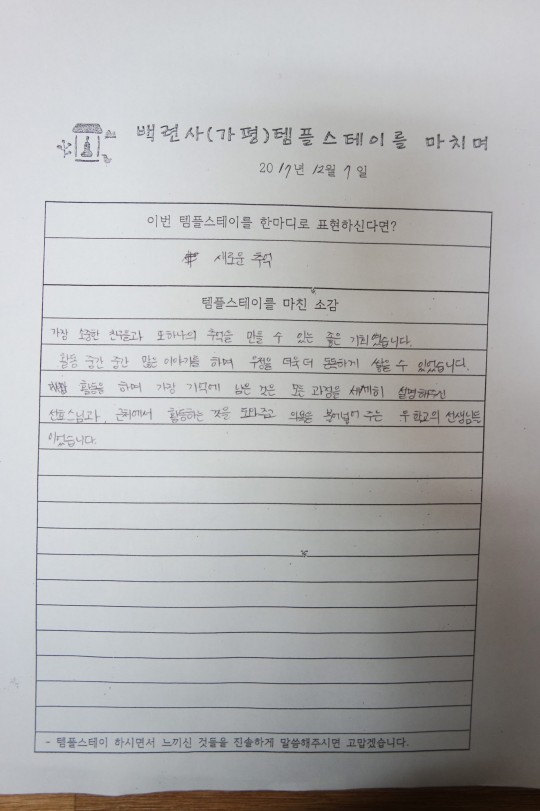 백련사(가평)템플스테이를 마치며
2017년 12월 7일
이번 템플스테이를 한마디로 표현하신다면?
새로운 추억
템플스테이를 마친 소감
가장 소중한 친구들과 또하나의 추억을 만들 수 있는 좋은 기회였습니다.
활동 중간 중간 많은 이야기를 하며 우정을 더욱 더 돈독하게 쌓을 수 있었습니다.
체험 활동을 하며 가장 기억에 남은 것은 모든 과정을 세세히 설명해주신
선효스님과, 근처에서 활동하는 것을 도와주고 의욕을 불어넣어 주는 두 학교의 선생님들
이었습니다.
- 템플스테이 하시면서 느끼신 것들을 진솔하게 말씀해주시면 고맙겠습니다.